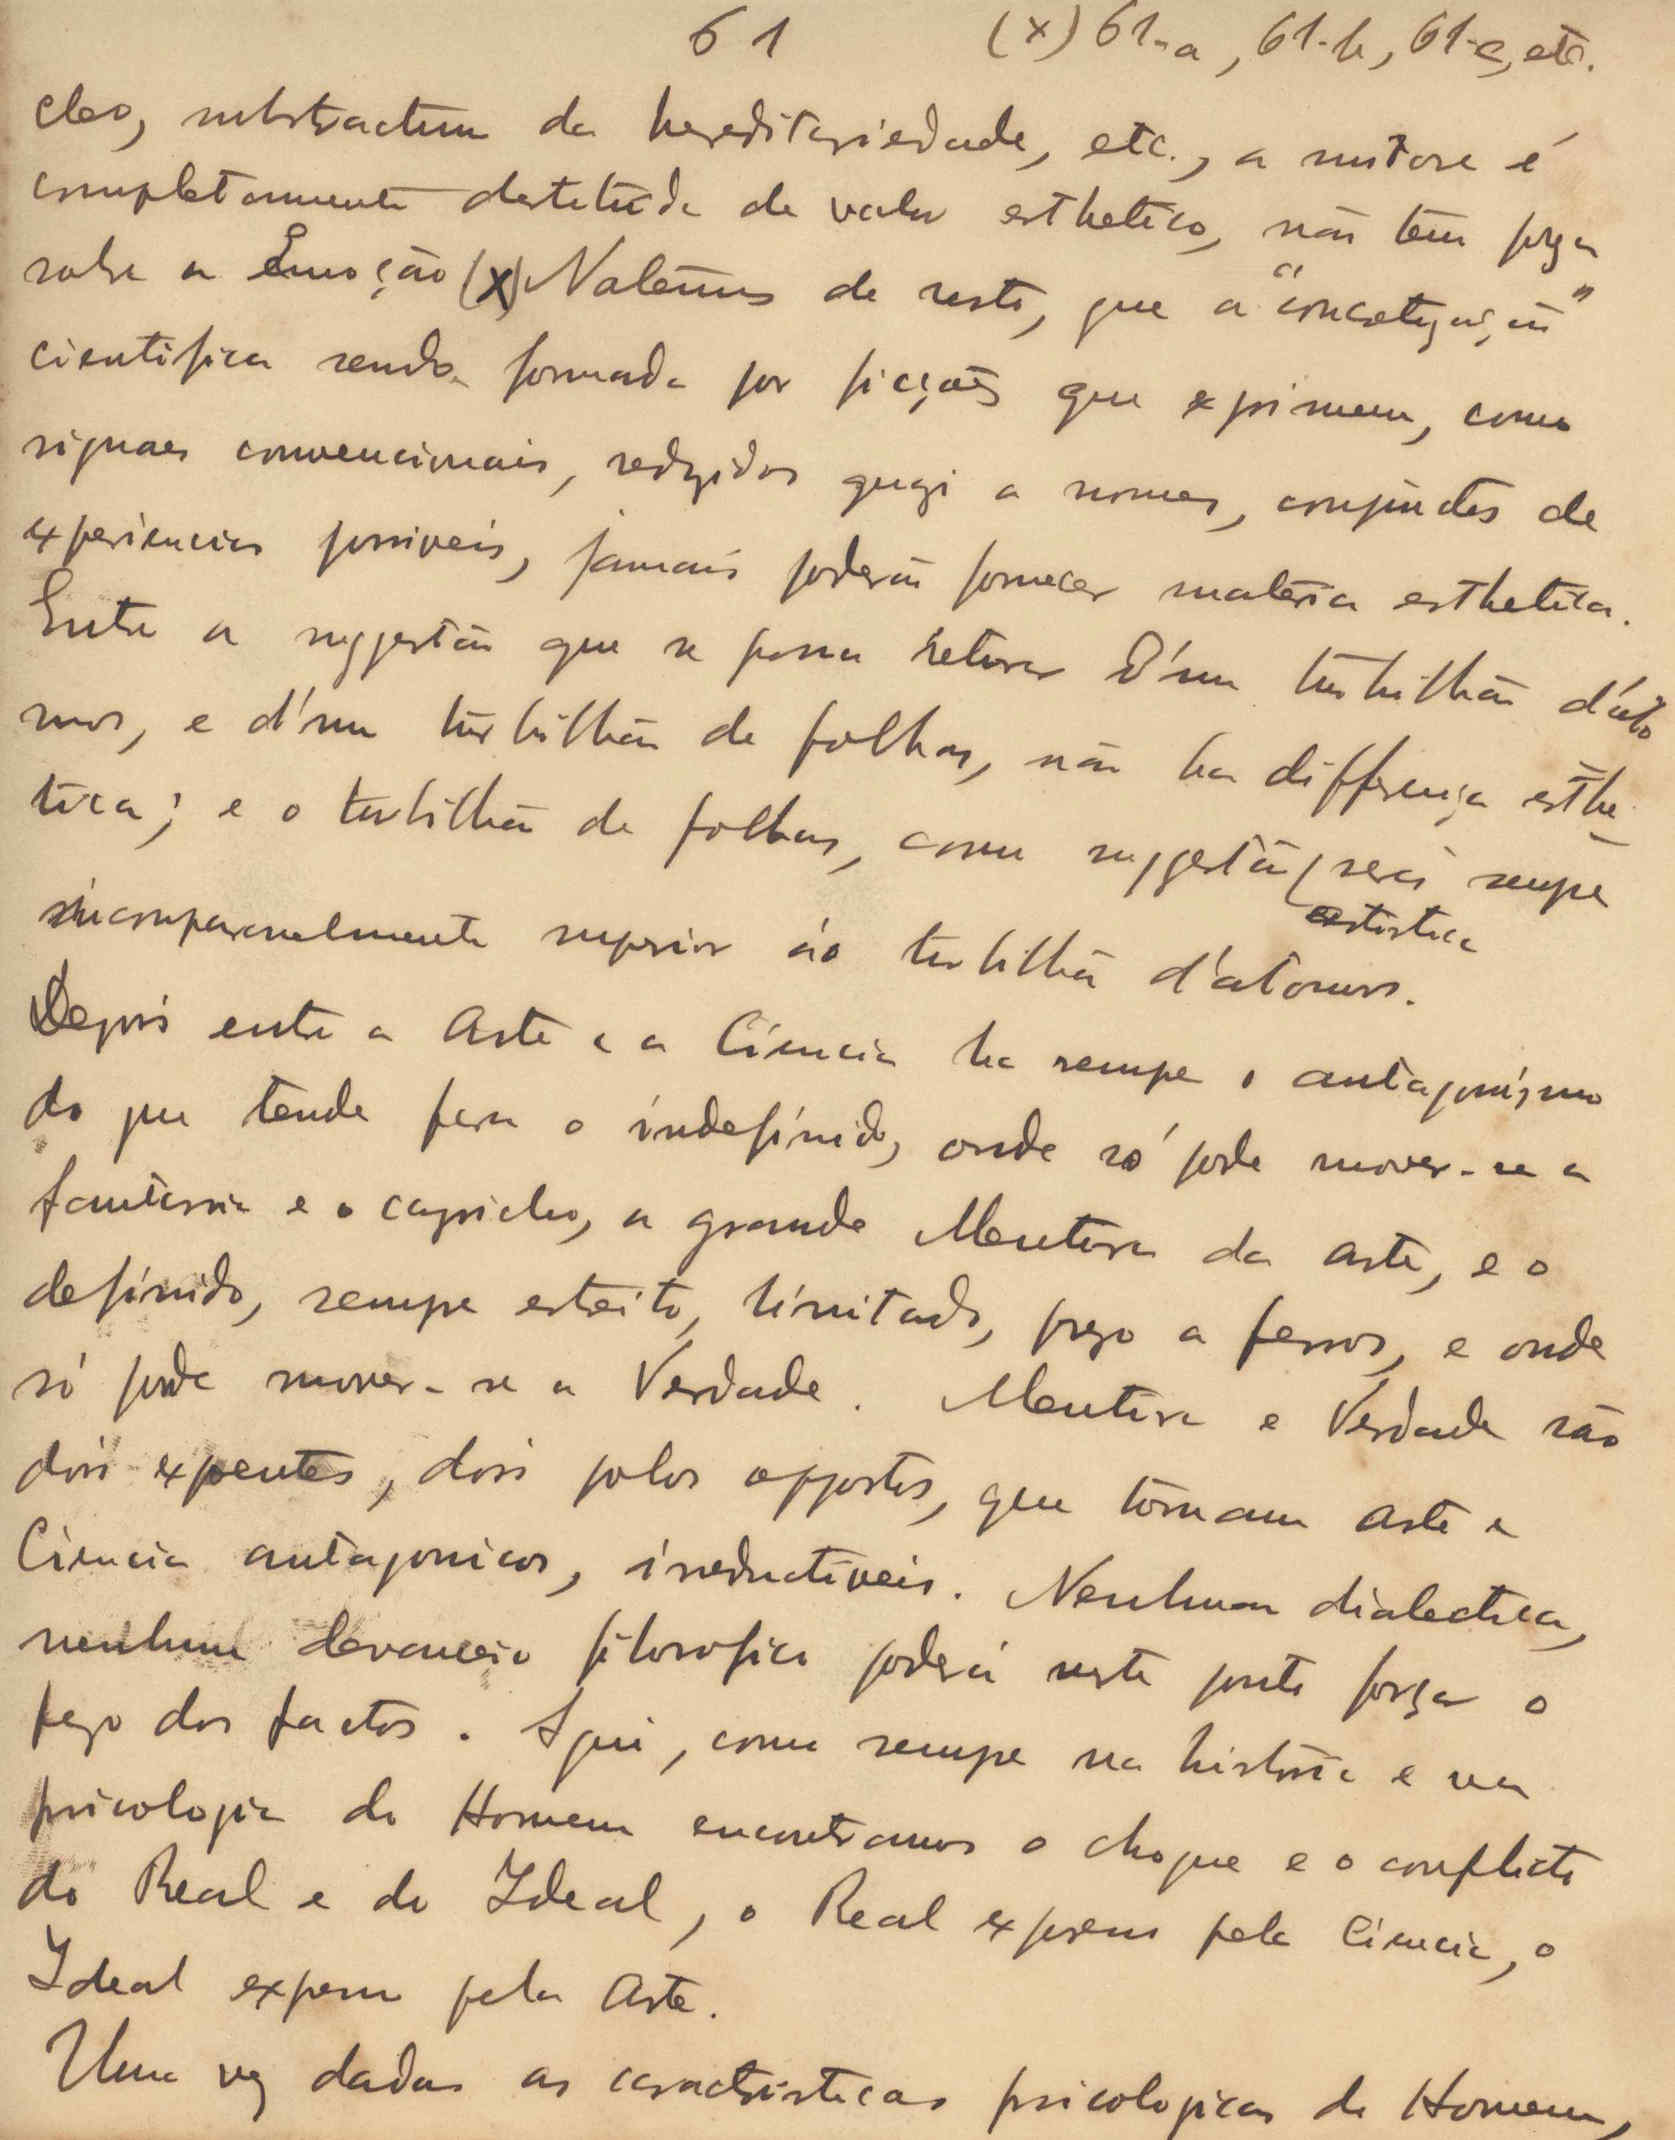 61 (x) 61-a, 61-b, 61-c, etc.
cleo, substractum da hereditariedade, etc., a nature é
completamente destituida de valor esthetico, não tem força
sobre a Emoção (x) Notemos de resto, que a
cientifica sendo formada por ficções que exprimem, como
signaes convencionais, redusidos quasi a nomes, conjunctos de
experiencias possiveis, jamais poderão fornecer materia esthetica.
Entre a suggestão que se possa retirar d'um turbilhão d'áto
mos, e d'um turbilhão de folhas, não ha differença esthe-
tica; e o turbilhão de folhas, como suggestão será sempre
artistica
incomparavelmente superior ao turbilhão d'atomos.
Depois entre a Arte e a Ciencia ha sempre o antagonismo
do que tende para o indefinido, onde só pode mover-se a
fantasia e o capricho, a grande Mentira da arte, e o
definido, sempre estreito, limitado, preso a ferros, e onde
só pode mover-se a Verdade. Mentira e Verdade são
dois expoentes, dois polos oppostos, que tornam Arte e
Ciencia antagonicos, irreductiveis. Nenhuma dialectica,
nenhum devaneio filosofico poderá neste ponto forçar o
peso dos factos. Aqui, como sempre na historia e na
psicologia do Homem encontramos o choque e o conflicto
do Real e do Ideal, o Real expresso pela Ciencia, o
Ideal expresso pela Arte.
Uma vez dadas as caracteristicas psicologicas do Homem,